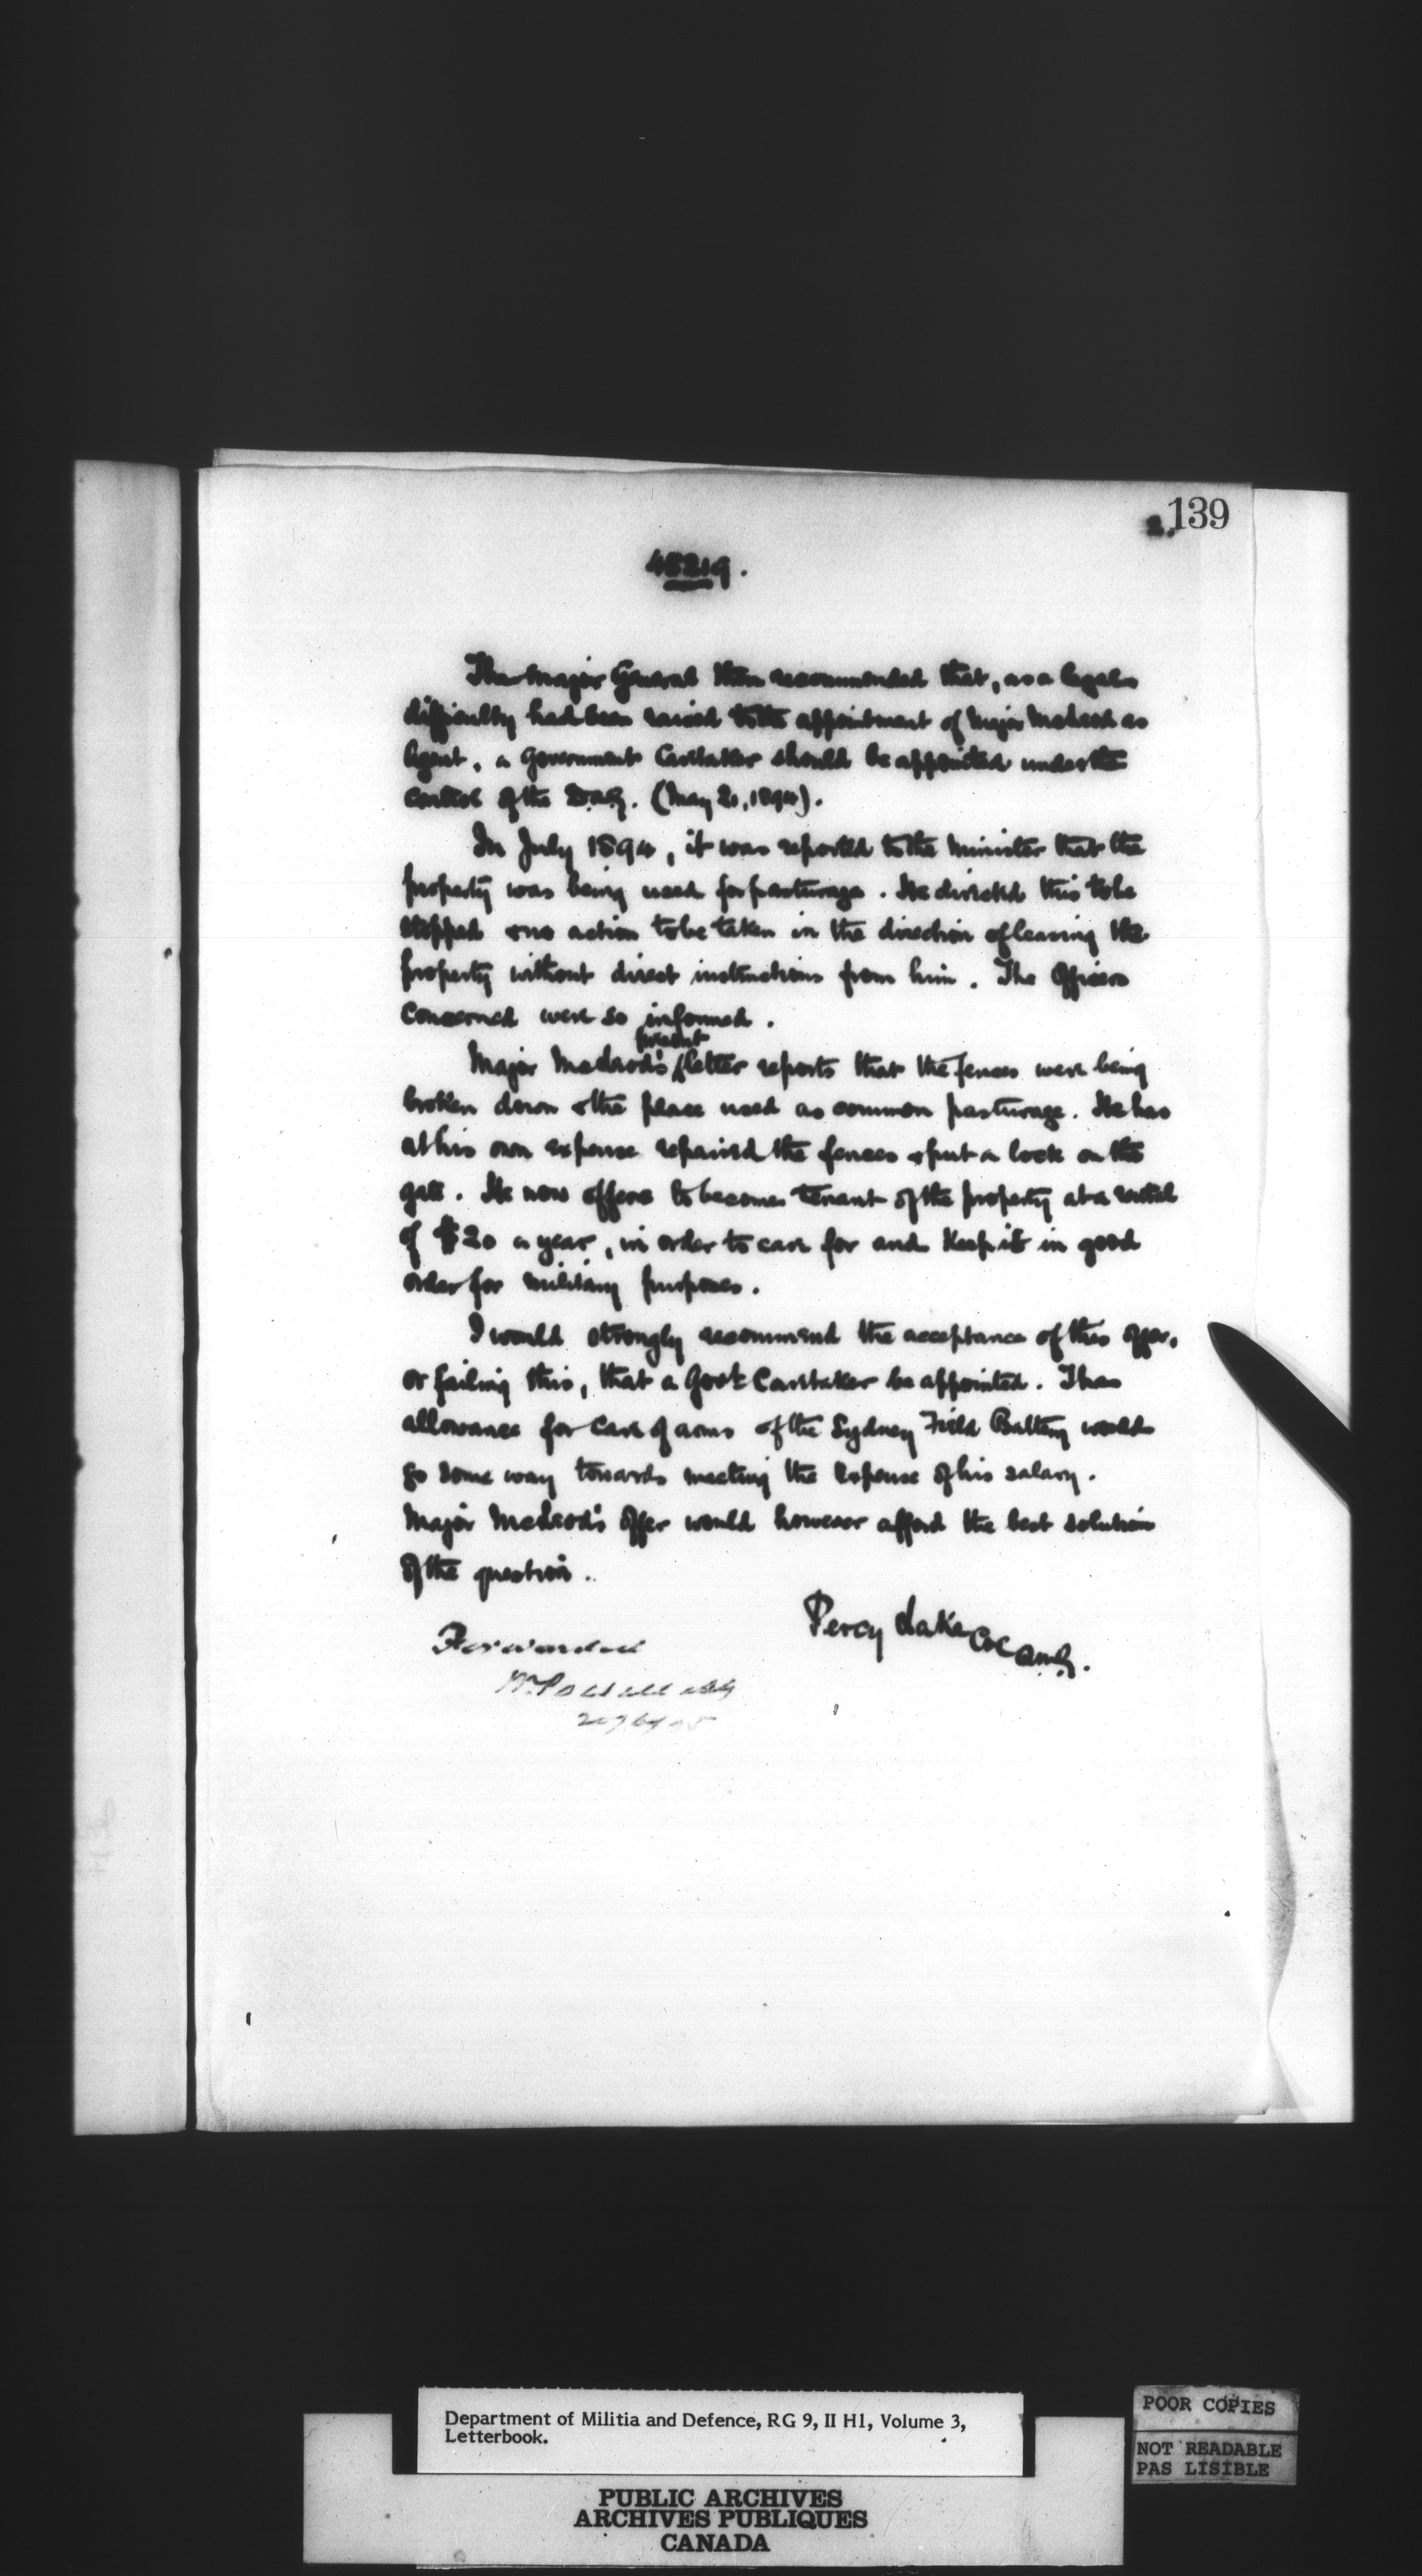 139
2.
45219.
The Major General then recommended that, as a legal
difficulty had been raised to the appointment of Major McLeod as
Agent, a Government Caretaker should be appointed under the
control of the D.A.G. (May 21, 1894).
In July 1894, it was reported to the Minister that the
property was being used for pasturage. He directed this to be
stopped & no action to be taken in the direction of leasing the
property without direct instructions from him. The Officers
concerned were so informed.
present
Major McLeod's letter reports that the fences were being
broken down & the place used as common pasturage. He has
at his own expense repaired the fences & put a lock on the
gate. He now offers to become tenant of the property at a rental
of $20 a year, in order to care for and keep it in good
order for military purposes.
I would strongly recommend the acceptance of this offer,
or failing this, that a Govt Caretaker be appointed. The
allowance for care of arms of the Sydney Field Battery would
go some way towards meeting the expense of his salary.
Major McLeod's offer would however afford the best solution
of the question.
Percy Lake Col
Forwarded
Department of Militia and Defence, RG 9, II H1, Volume 3,
Letterbook.
POOR COPIES
NOT READABLE
PAS LISIBLE
PUBLIC ARCHIVES
ARCHIVES PUBLIQUES
CANADA